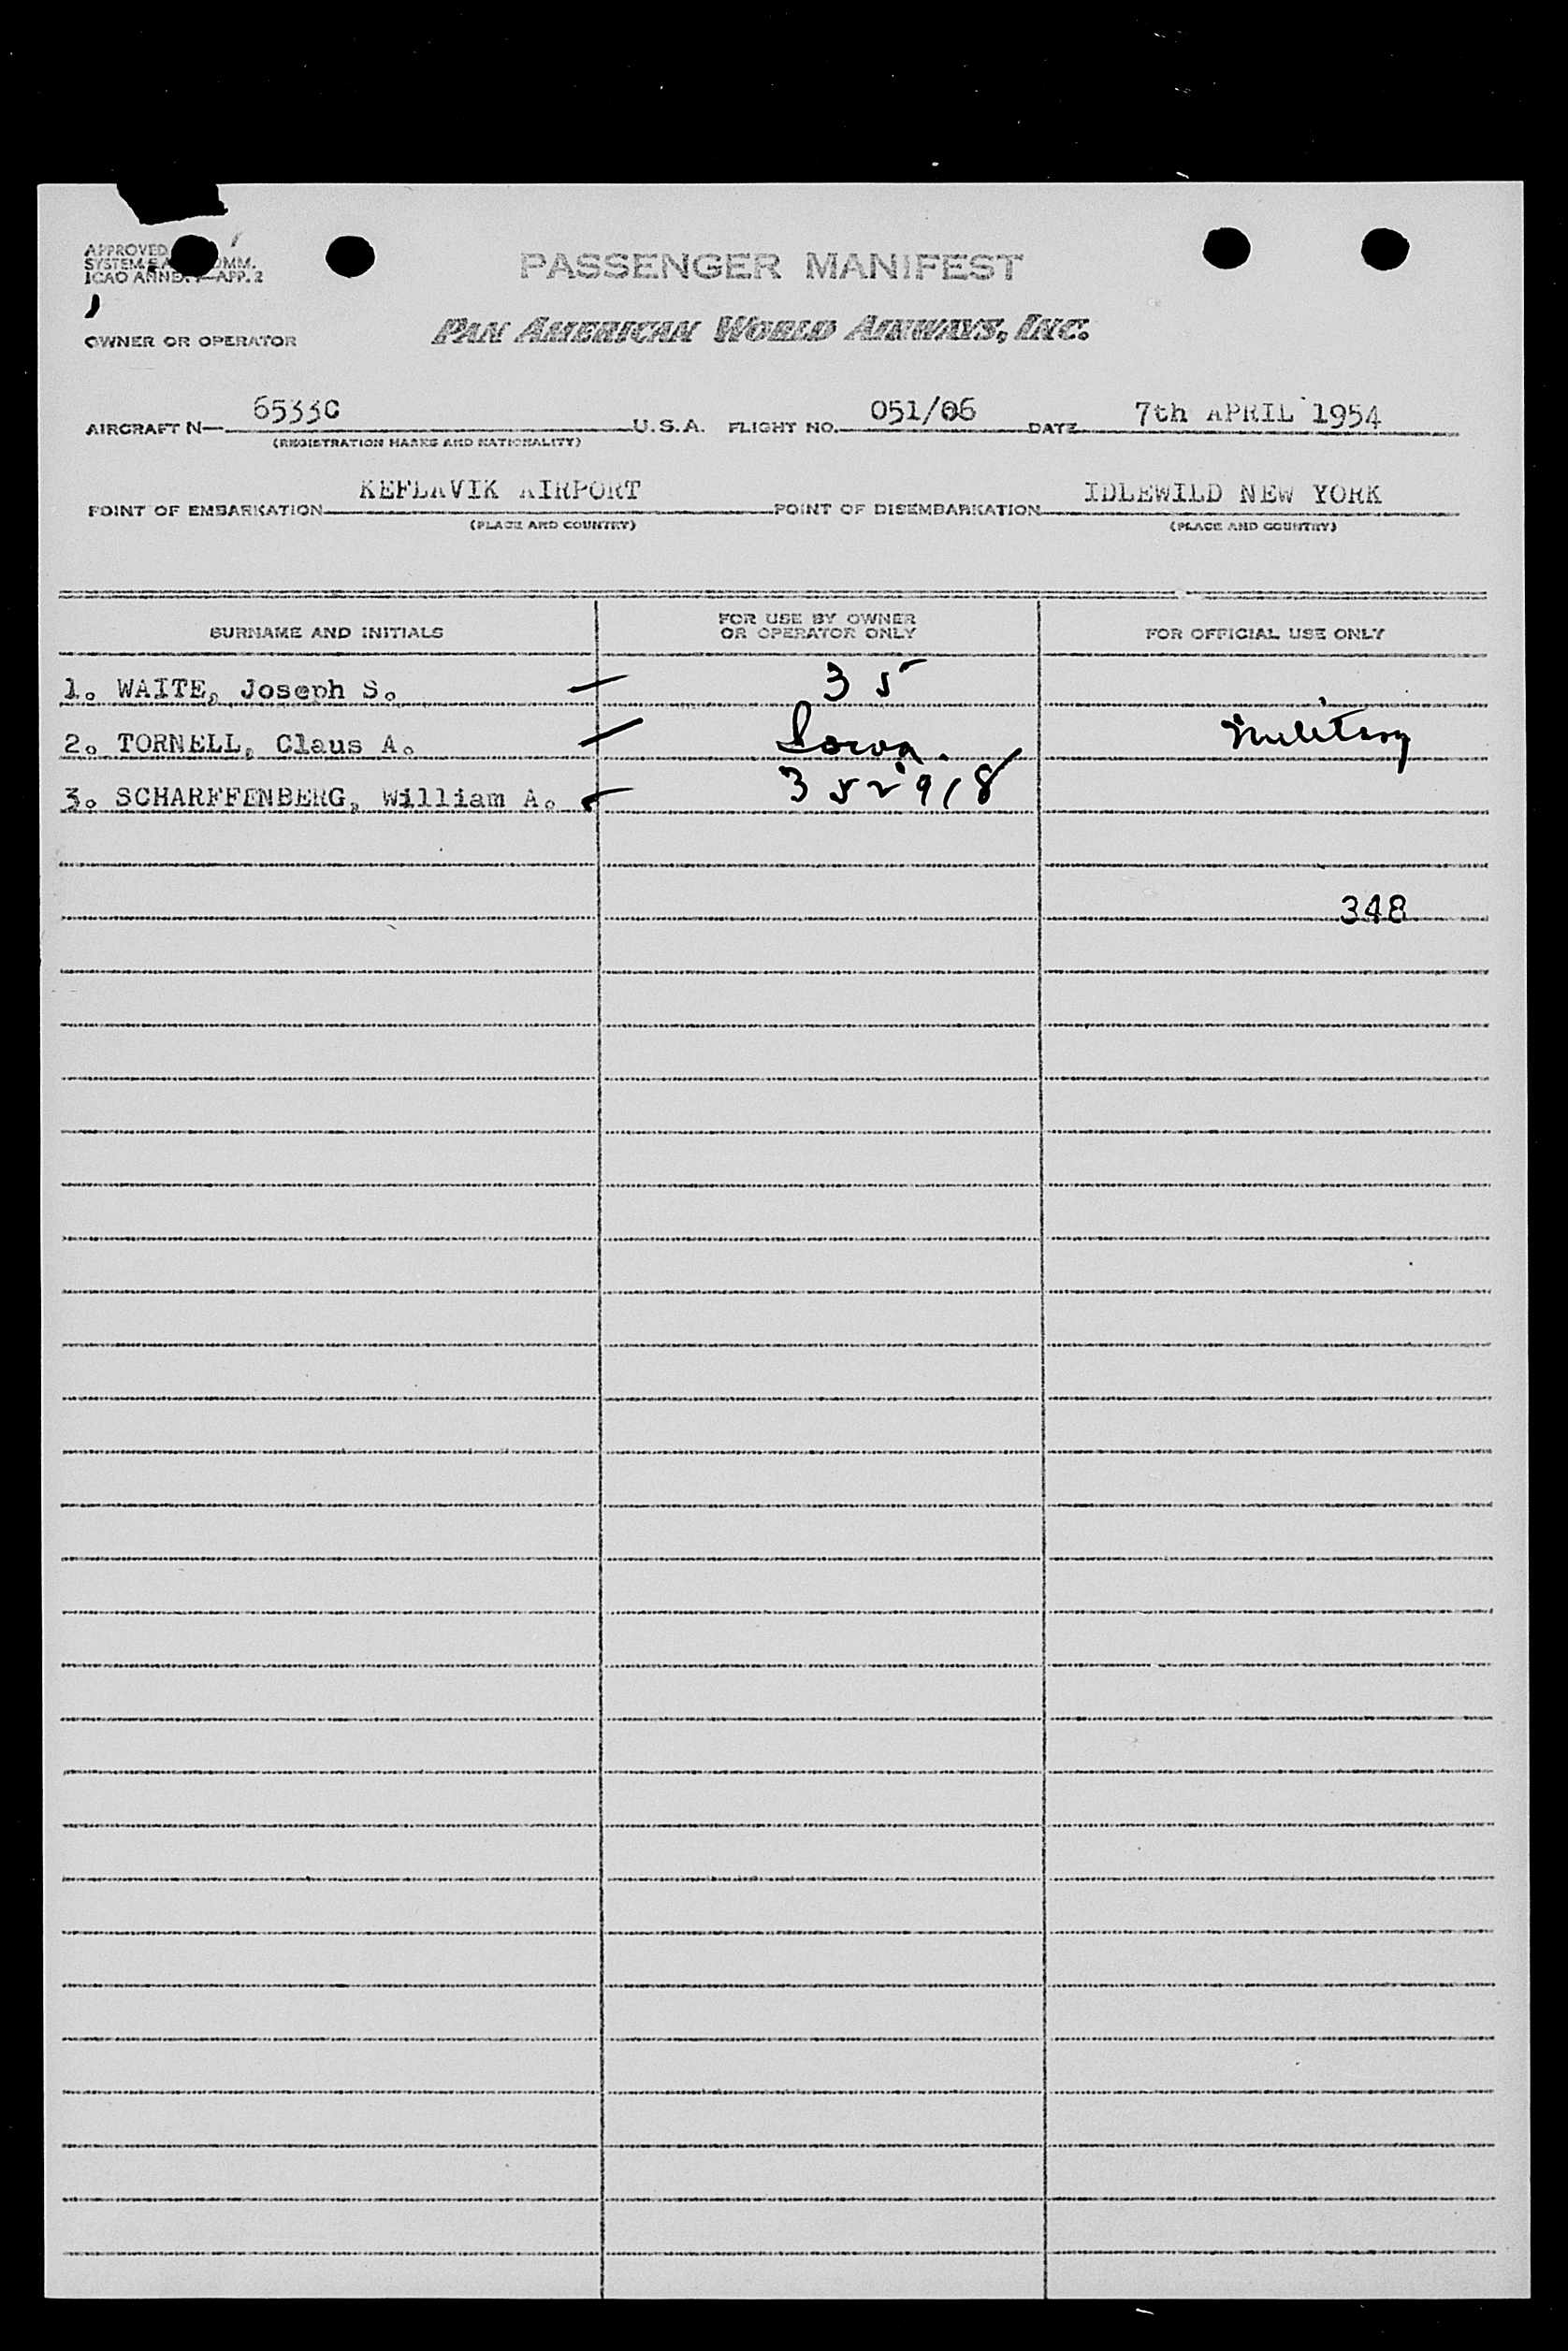 APPROVED
SYSTEM & A OMM.
ICAO ANNEX APP. 2
PASSENGER MANIFEST
OWNER OR OPERATOR PAN AMERICAN WORLD AIRWAYS, INC.
AIRCRAFT N— 6533C U.S.A. FLIGHT NO. 051/06 DATE 7th APRIL 1954
(REGISTRATION MARKS AND NATIONALITY)
POINT OF EMBARKATION KEFLAVIK AIRPORT POINT OF DISEMBARKATION IDLEWILD NEW YORK
(PLACE AND COUNTRY) (PLACE AND COUNTRY)
SURNAME AND INITIALS FOR USE BY OWNER OR OPERATOR ONLY FOR OFFICIAL USE ONLY
1. WAITE, Joseph S. 35
2. TORNELL, Claus A. Military
3. SCHARFFENBERG, William A. 352918
348